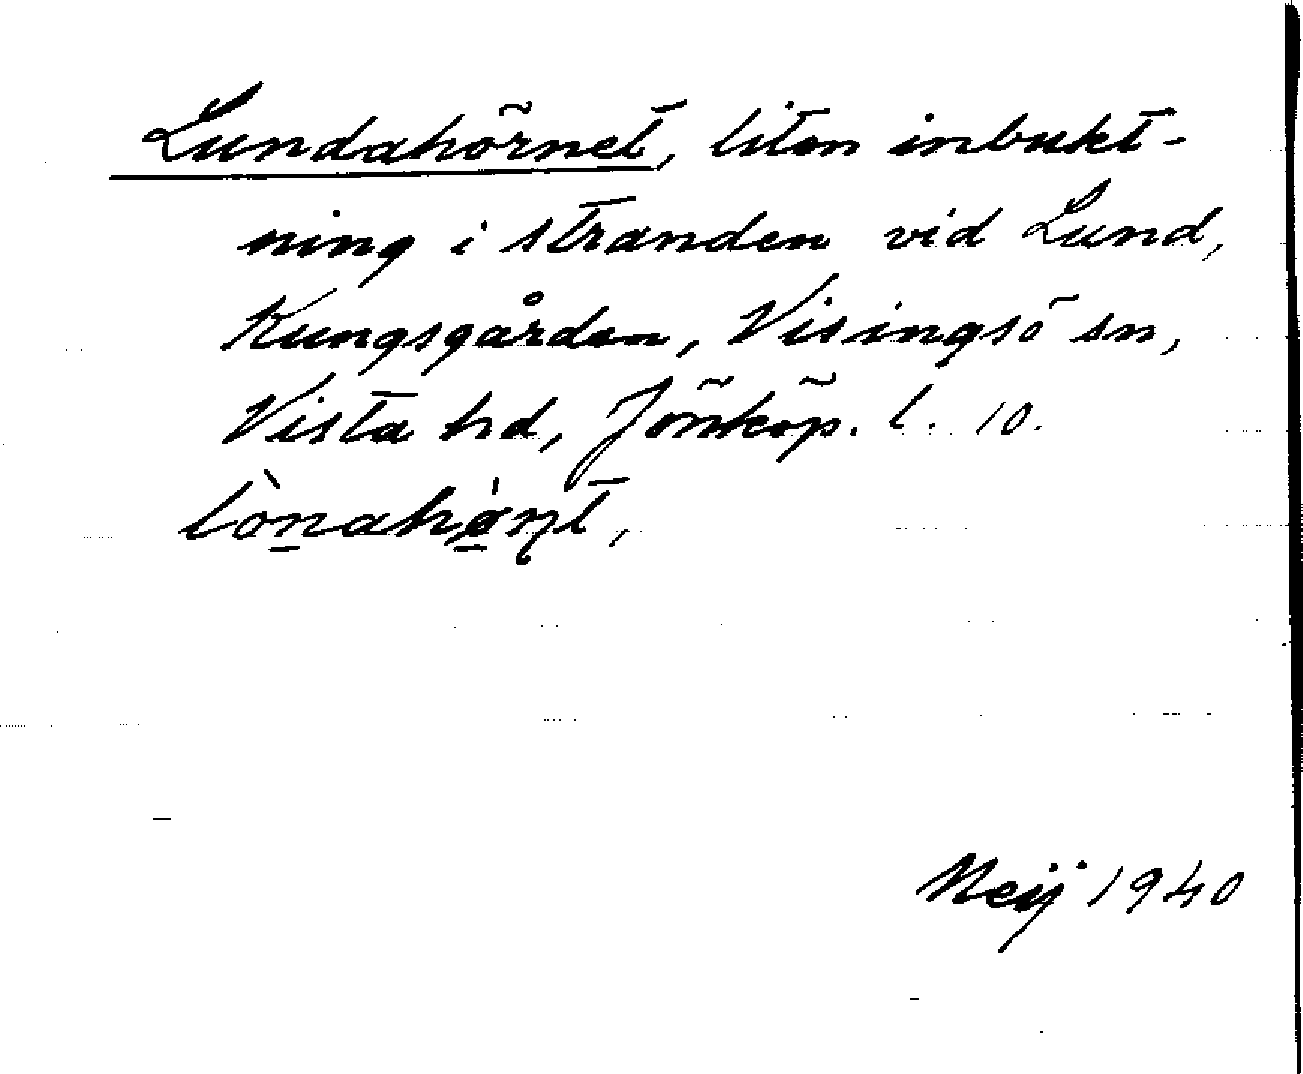 Lundahörnet, liten inbukt-
ning i stranden vid Lund,
Kungsgården, Visingsö sn,
Vista hd, Jönköp. l. 10.
Meij 1940